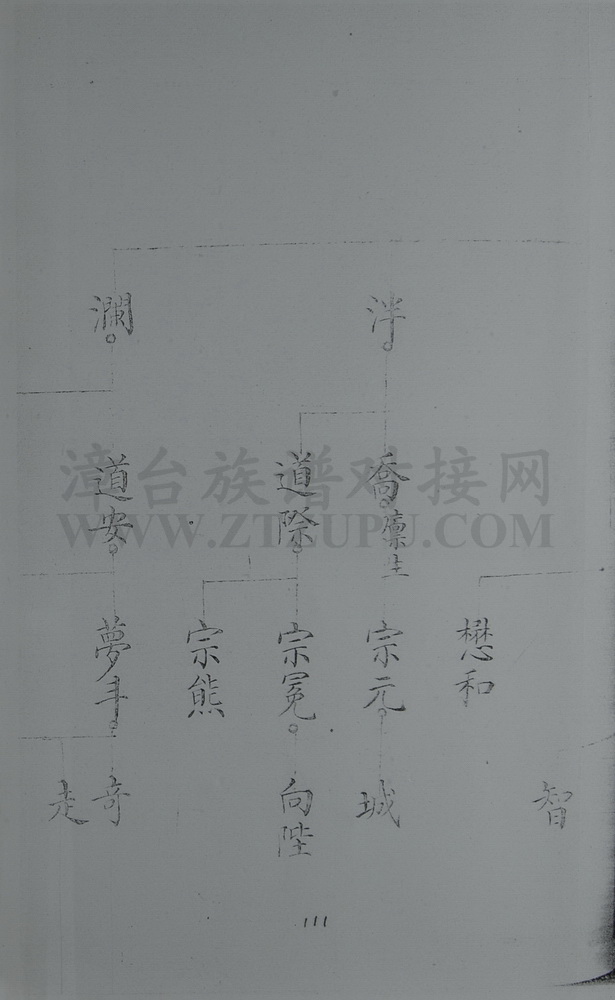 泮
瀾
喬 廩生
道際
道安
懋和
宗元
宗冕
宗熊
夢斗
智
城
向陛
奇
走
111
漳台族谱对接网
WWW.ZTZUPU.COM